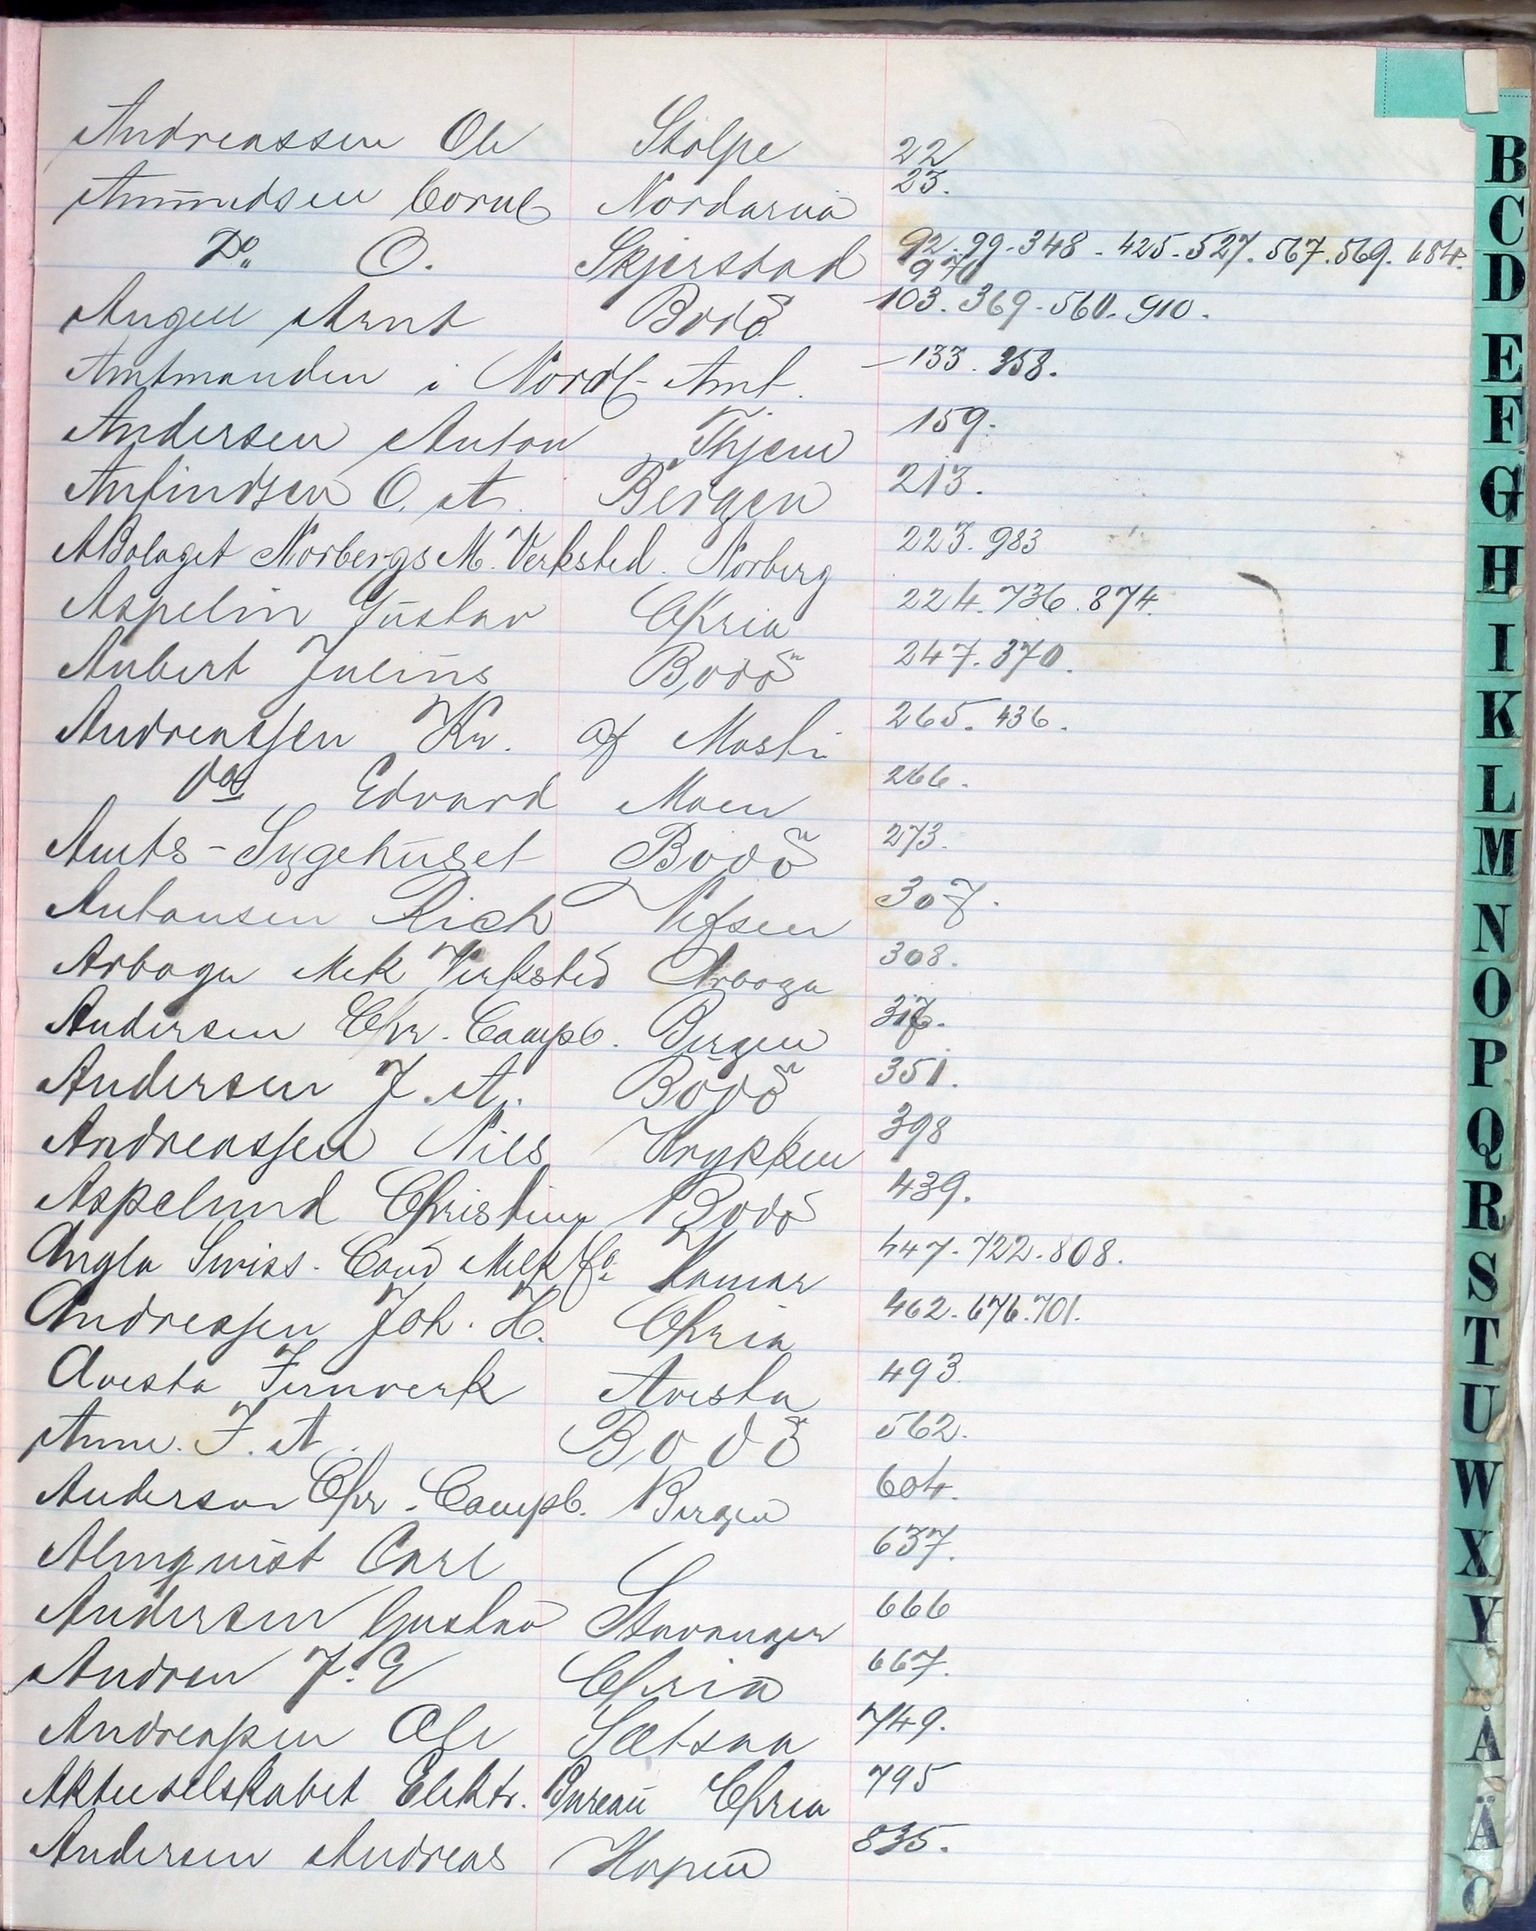 Andreassen Ole Stolpe 22
Amundsen Cornel Nordarnö 23.
Do. O. Skjerstad 92. 99. 348. 425. 527. 567. 569. 684.
970
Angell Arnt Bodö 103. 369. 560. 910.
Amtmanden i Nordl. Amt. 133. 358.
Andersen Anton Thjem 159.
Anfindsen O. A. Bergen 213.
ABolaget Norbergs M. Verksted. Norberg 223. 983
Aspelin Gustav Chria 224. 736. 874.
Aubert Julius Bodö 247. 370.
Andreassen Kr. af Mosti 265. 436.
Do Edvard Moen 266.
Amts-Sygehuset Bodö 273.
Antonsen Rich Vefsen 307.
Arboga Mek Verksted Arboga 308.
Andersen Chr. Campb. Bergen
Andersen J. A. Bodö 351.
Andreassen Nils Krykken 398
Aspelund Christine Bodö 439.
Anglo Swiss. Cond Milk Co. Hamar 447. 722. 808.
Andresen Joh. H. Chria 462. 676. 701.
Avesta Jernverk Avesta 493
Anne. J. A. Bodö 562.
Anderson Chr. Campb. Bergen 604.
Almqvist Carl 637.
Andersen Gustav Stavanger 666
Andren J. E Chria 667.
Andreassen Ole Sætsaa 749.
Aktieselskabet Elektr. Bureau Chria 795
Andersen Andreas Hopen 835.
B
C
D
E
F
G
H
I
K
L
M
N
O
P
Q
R
S
T
U
W
X
Y
Å
Ä